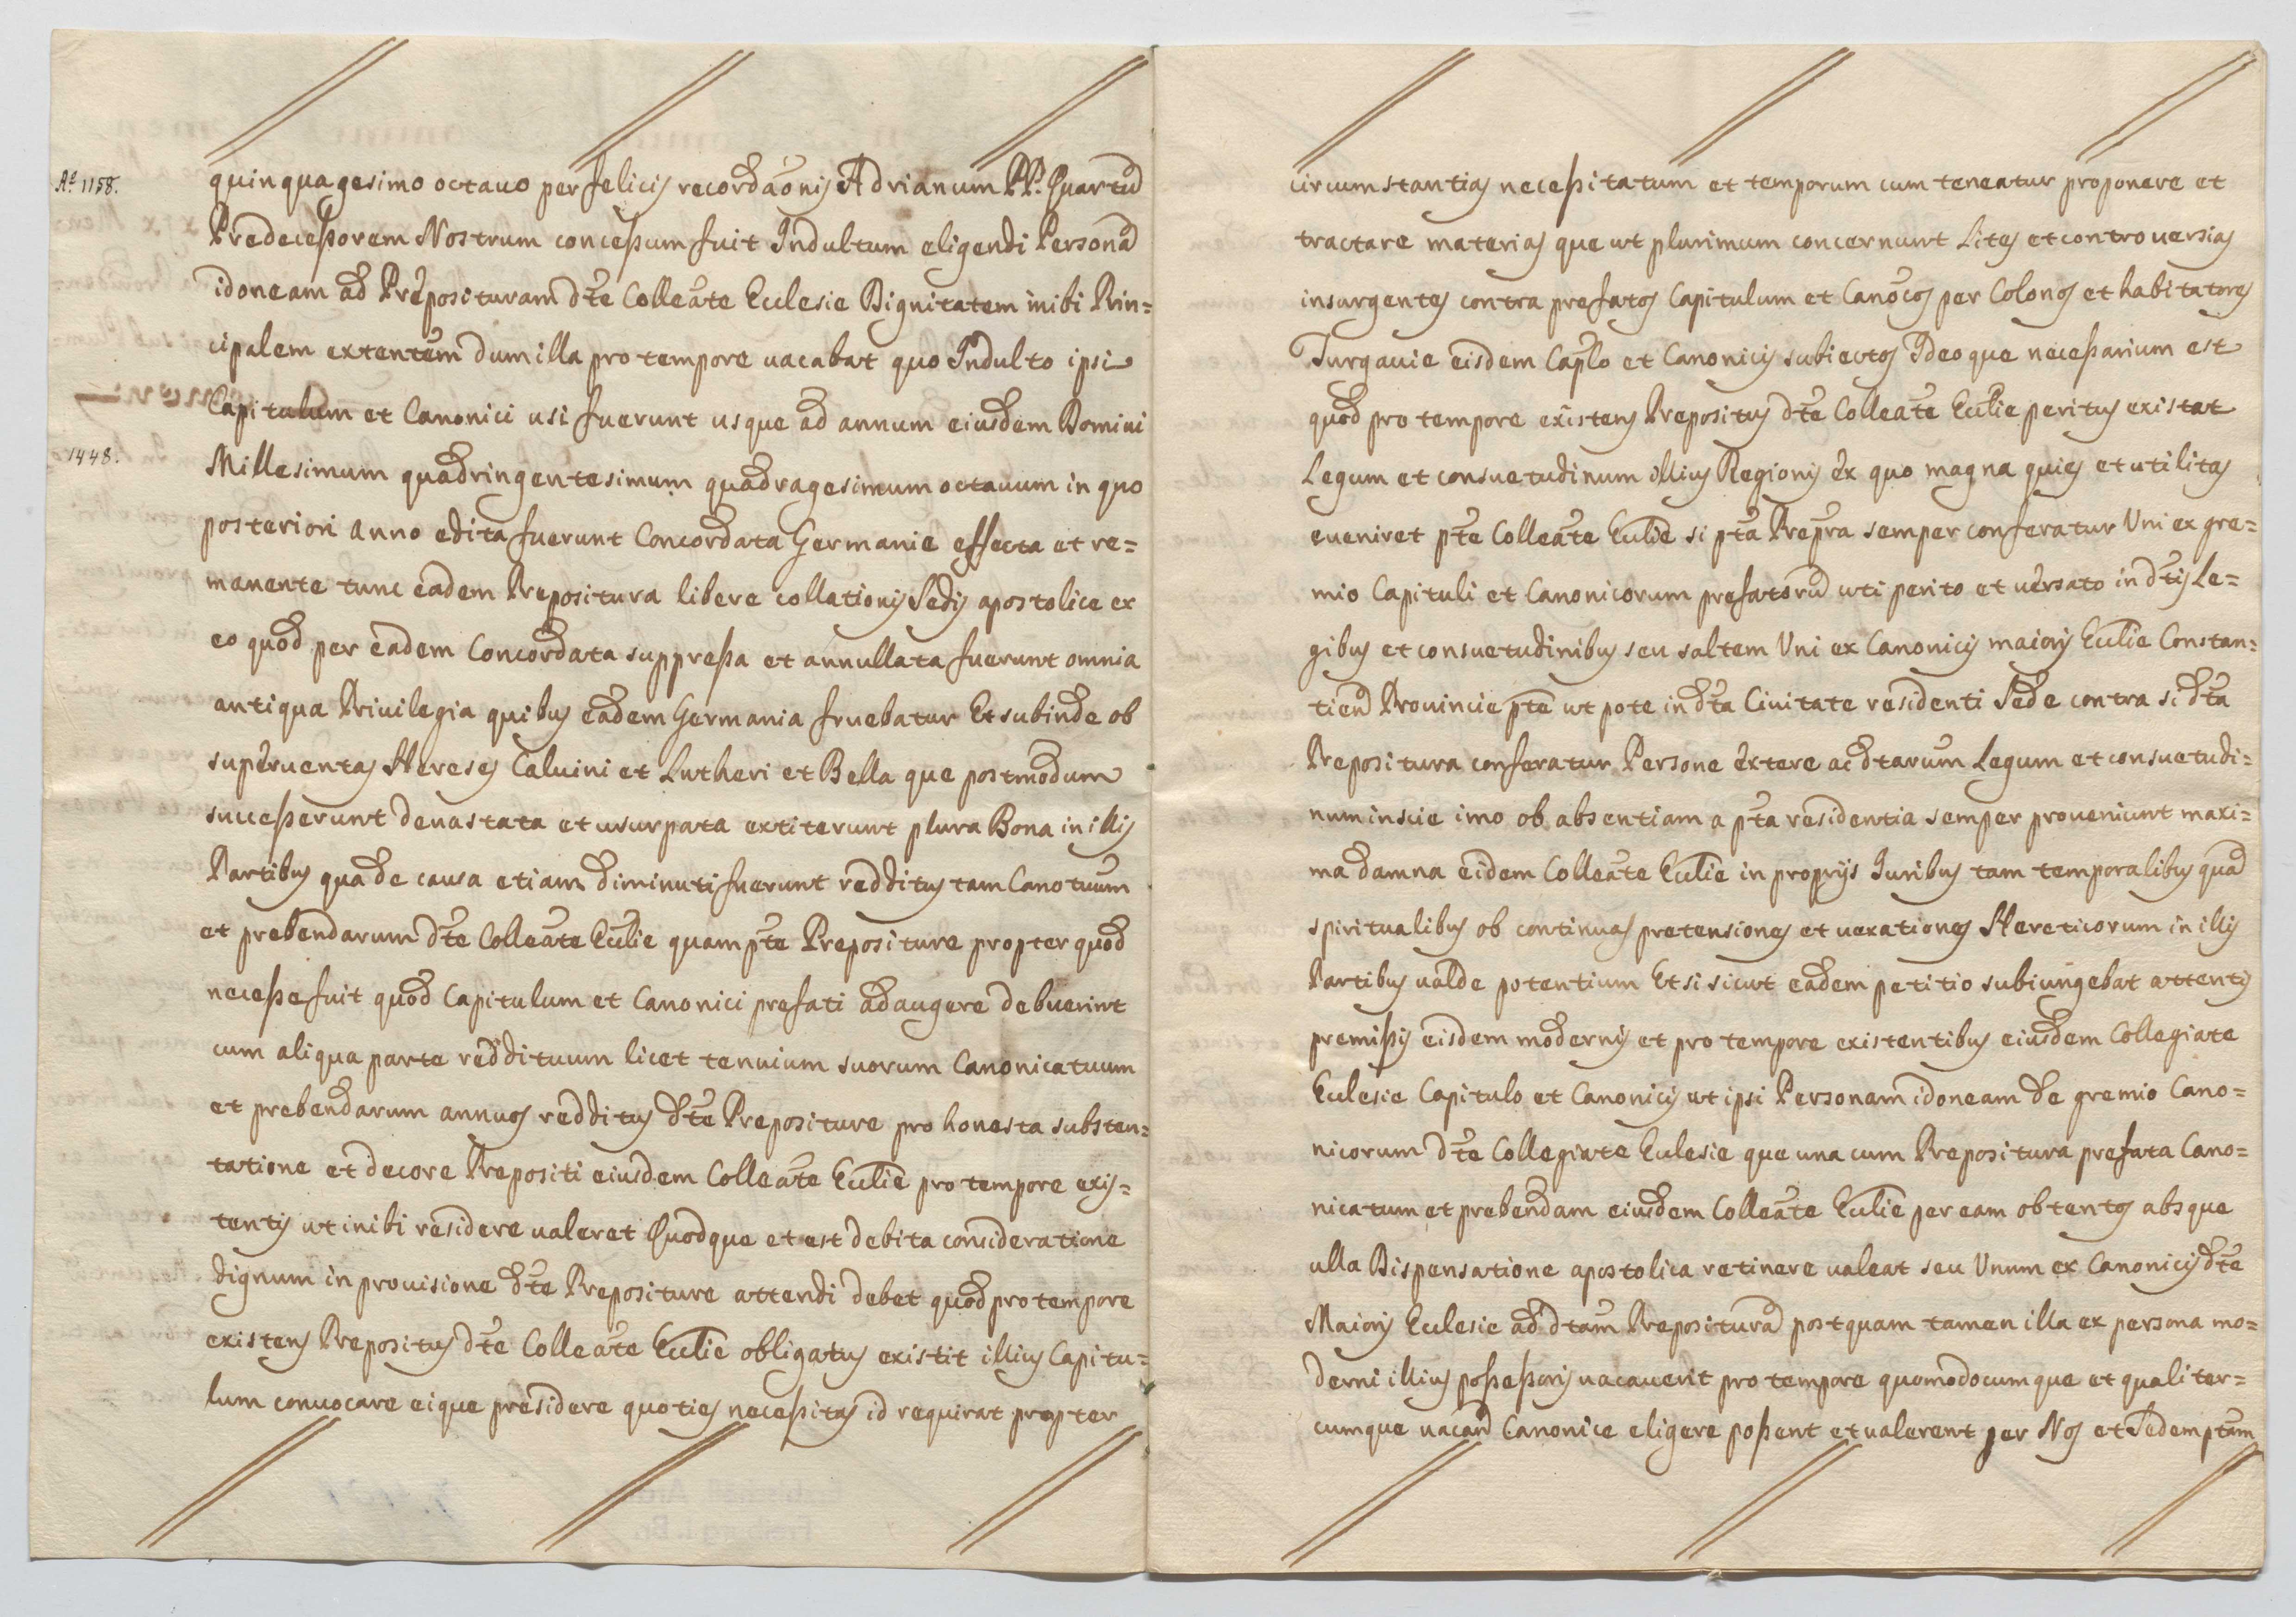 Aº 1158.
quinquagesimo octauo per felicis recordãonis Adrianum PP. Quartũ
Predecessorem Nostrum concessum fuit Indultum eligendi Personã
idoneam ad Preposituram dte Colleãte Ecclesie Dignitatem inibi Prin=
cipalem extentem dum illa pro tempore uacabat quo Indulto ipsi
Capitulum et Canonici usi fuerunt usque ad annum eiusdem Domini
1448.
Millesimum quadringentesimum quadragesimum octauum in quo
posteriori anno edita fuerunt Concordata Germanie effecta et re=
manente tunc eadem Prepositura libere collationis Sedis apostolice ex
eo quod per eadem Concordata suppressa et annullata fuerunt omnia
antiqua Priuilegia quibus eadem Germania fruebatur Et subinde ob
superuentas Hereses Caluini et Lutheri et Bella que postmodum
successerunt deuastata et usurpata extiterunt plura Bona in illis
Partibus qua de causa etiam diminuti fuerunt redditus tam Canotuum
et prebendarum dte Colleãte Ecclie quam pte Prepositure propter quod
necesse fuit quod Capitulum et Canonici prefati adaugere debuerint
cum aliqua parte reddituum licet tenuium suorum Canonicatuum
et prebendarum annuos redditus dte Prepositure pro honesta substen=
tatione et decore Prepositi eiusdem Colleãte Ecclie pro tempore exis=
tentis ut inibi residere ualeret Quodque et est debita consideratione
dignum in prouisione dte Prepositure attendi debet quod pro tempore
existens Prepositus dte Colleãte Ecclie obligatus existit illius Capitu=
lum conuocare eique presidere quoties necessitas id requirat propter
circumstantias necessitatum et temporum cum teneatur proponere et
tractare materias que ut plurimum concernunt Lites et controuersias
insurgentes contra prefatos Capitulum et Canõcos per Colonos et habitatores
Turgauie eisdem Caplo et Canonicis subiectos Ideoque necessarium est
quod pro tempore existens Prepositus dte Colleãte Ecclie peritus existat
Legum et consuetudinum illius Regionis ex quo magna quies et utilitas
eueniret pte Colleãte Ecclie si pta Prepra semper conferatur Uni ex gre=
mio Capituli et Canonicorum prefatorũ uti perito et uersato in dtis Le=
gibus et consuetudinibus seu saltem Uni ex Canonicis maioris Ecclie Constan=
tien Prouincie pte ut pote in dta Ciuitate residenti Sede contra si dta
Prepositura conferatur Persone extere ac dtarum Legum et consuetudi=
num inscie imo ob absentiam a pta residentia semper proueniunt maxi=
ma damna eidem Colleãte Ecclie in proprijs Iuribus tam temporalibus quã
spiritualibus ob continuas pretensiones et uexationes Hereticorum in illis
Partibus ualde potentium Et si sicut eadem petitio subiungebat attentis
premissis eisdem modernis et pro tempore existentibus eiusdem Collegiate
Ecclesie Capitulo et Canonicis ut ipsi Personam idoneam de gremio Cano=
nicorum dte Collegiate Ecclesie que una cum Prepositura prefata Cano=
nicatum et prebendam eiusdem Colleãte Ecclie per eam obtentos absque
ulla Dispensatione apostolica retinere ualeat seu Unum ex Canonicis dte
Maioris Ecclesie ad dtam Prepositurã postquam tamen illa ex persona mo=
derni illius possessoris uacauerit pro tempore quomodocumque et qualiter=
cumque uacan Canonice eligere possent et ualerent per Nos et Sedem ptam